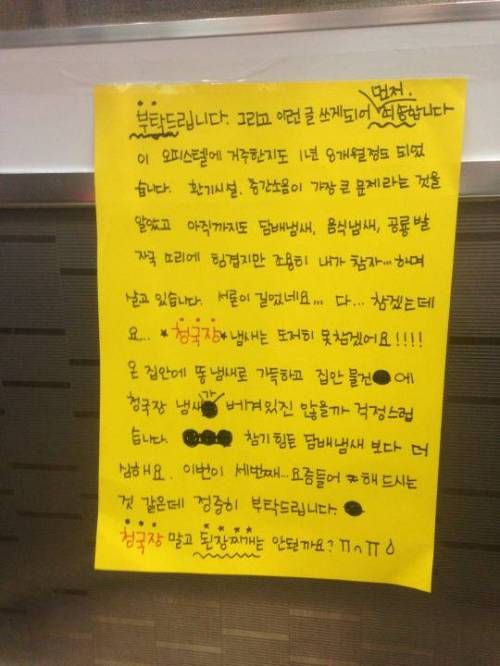 먼저.
부탁드립니다. 그리고 이런글 쓰게되어 죄송합니다
이 오피스텔에 거주한지도 1년 8개월정도 되었
습니다. 환기시설, 층간소음이 가장 큰 문제라는 것을
알았고 아직까지도 담배냄새, 음식냄새, 공룡발
자국 소리에 힘겹지만 조용히 내가 참자...하며
살고 있습니다. 서론이 길었네요... 다... 참겠는데
요... *청국장* 냄새는 도저히 못참겠어요!!!!
온 집안에 똥냄새로 가득하고 집안 물건에
청국장 냄새가 베겨있진 않을까 걱정스럽
습니다. 참기힘든 담배냄새 보다 더
심해요. 이번이 세번째...요즘들어 해드시는
것 같은데 정중히 부탁드립니다.
청국장 말고 된장찌개는 안될까요? ㅠㅠ